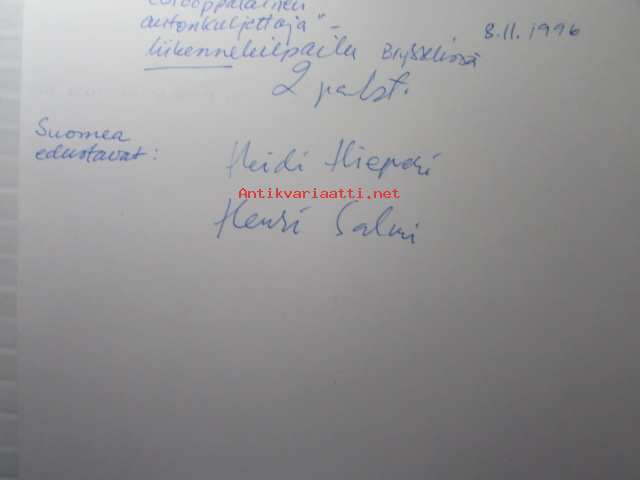 eurooppalainen
autonkuljettaja" - 8.11.1996
liikennekilpailu Brysselissä
2 palst.
Suomea
edustavat:
Heidi
Antikvariaatti.net
Henri Salmi